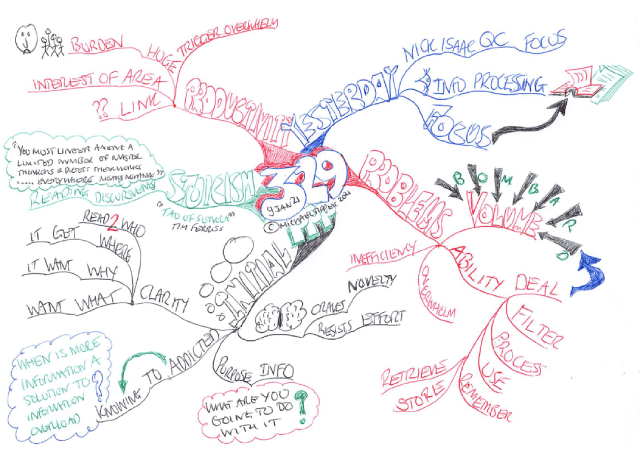 329
9 JAN 21
© MICHAEL TIPPER 2021
YESTERDAY
NICK ISAAC QC FOCUS
INFO PROCESSING
FOCUS
PROBLEMS
VOLUME
BOMBARD
ABILITY DEAL
INEFFICIENCY
OVERWHELM
FILTER
PROCESS
USE
REMEMBER
STORE
RETRIEVE
INITIAL
CRAVES NOVELTY
RESISTS EFFORT
PURPOSE INFO
WHAT ARE YOU
GOING TO DO
WITH IT
?
ADDICTED
TO
KNOWING
WHEN IS MORE
INFORMATION A
SOLUTION TO
INFORMATION
OVERLOAD
?
CLARITY
READ WHO
2
WHERE
IT GET
WHY
IT WANT
WHAT
WANT
STOICISM
"TAO OF SENECA"
TIM FERRISS
READING DISCURSIVENESS
"YOU MUST LINGER AMONG A
LIMITED NUMBER OF MASTER
THINKERS & DIGEST THEIR WORKS
EVERYWHERE MEANS NOWHERE"
PRODUCTIVITY
TRIGGER OVERWHELM
HUGE
BURDEN
INTEREST OF AREA
?? LINK